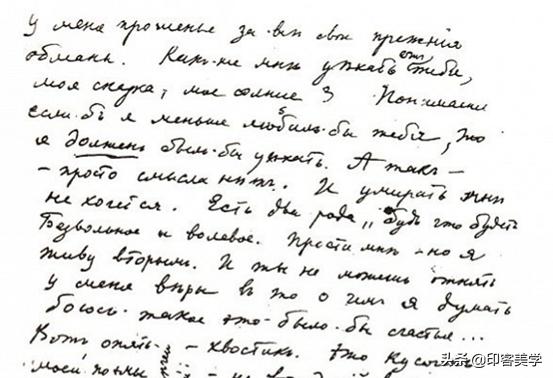 у меня прощенье за всѣ свои прежнія
обманы. Какъ-же мнѣ уѣхать отъ тебя,
моя сказка, мое солнце? Понимаешь
если-бъ я меньше любилъ-бы тебя, то
я долженъ былъ-бы уѣхать. А такъ –
– просто смысла нѣтъ. И умирать мнѣ
не хочется. Есть два рода „будь что будетъ"
Безвольное и волевое. Прости мнѣ – но я
живу вторымъ. И ты не можешь отнять
у меня вѣры въ то о чемъ я думать
боюсь – такое это-было-бы счастье...
Вотъ опять – хвостикъ. Это кусочекъ
моей поэмы
头条 @印客美学